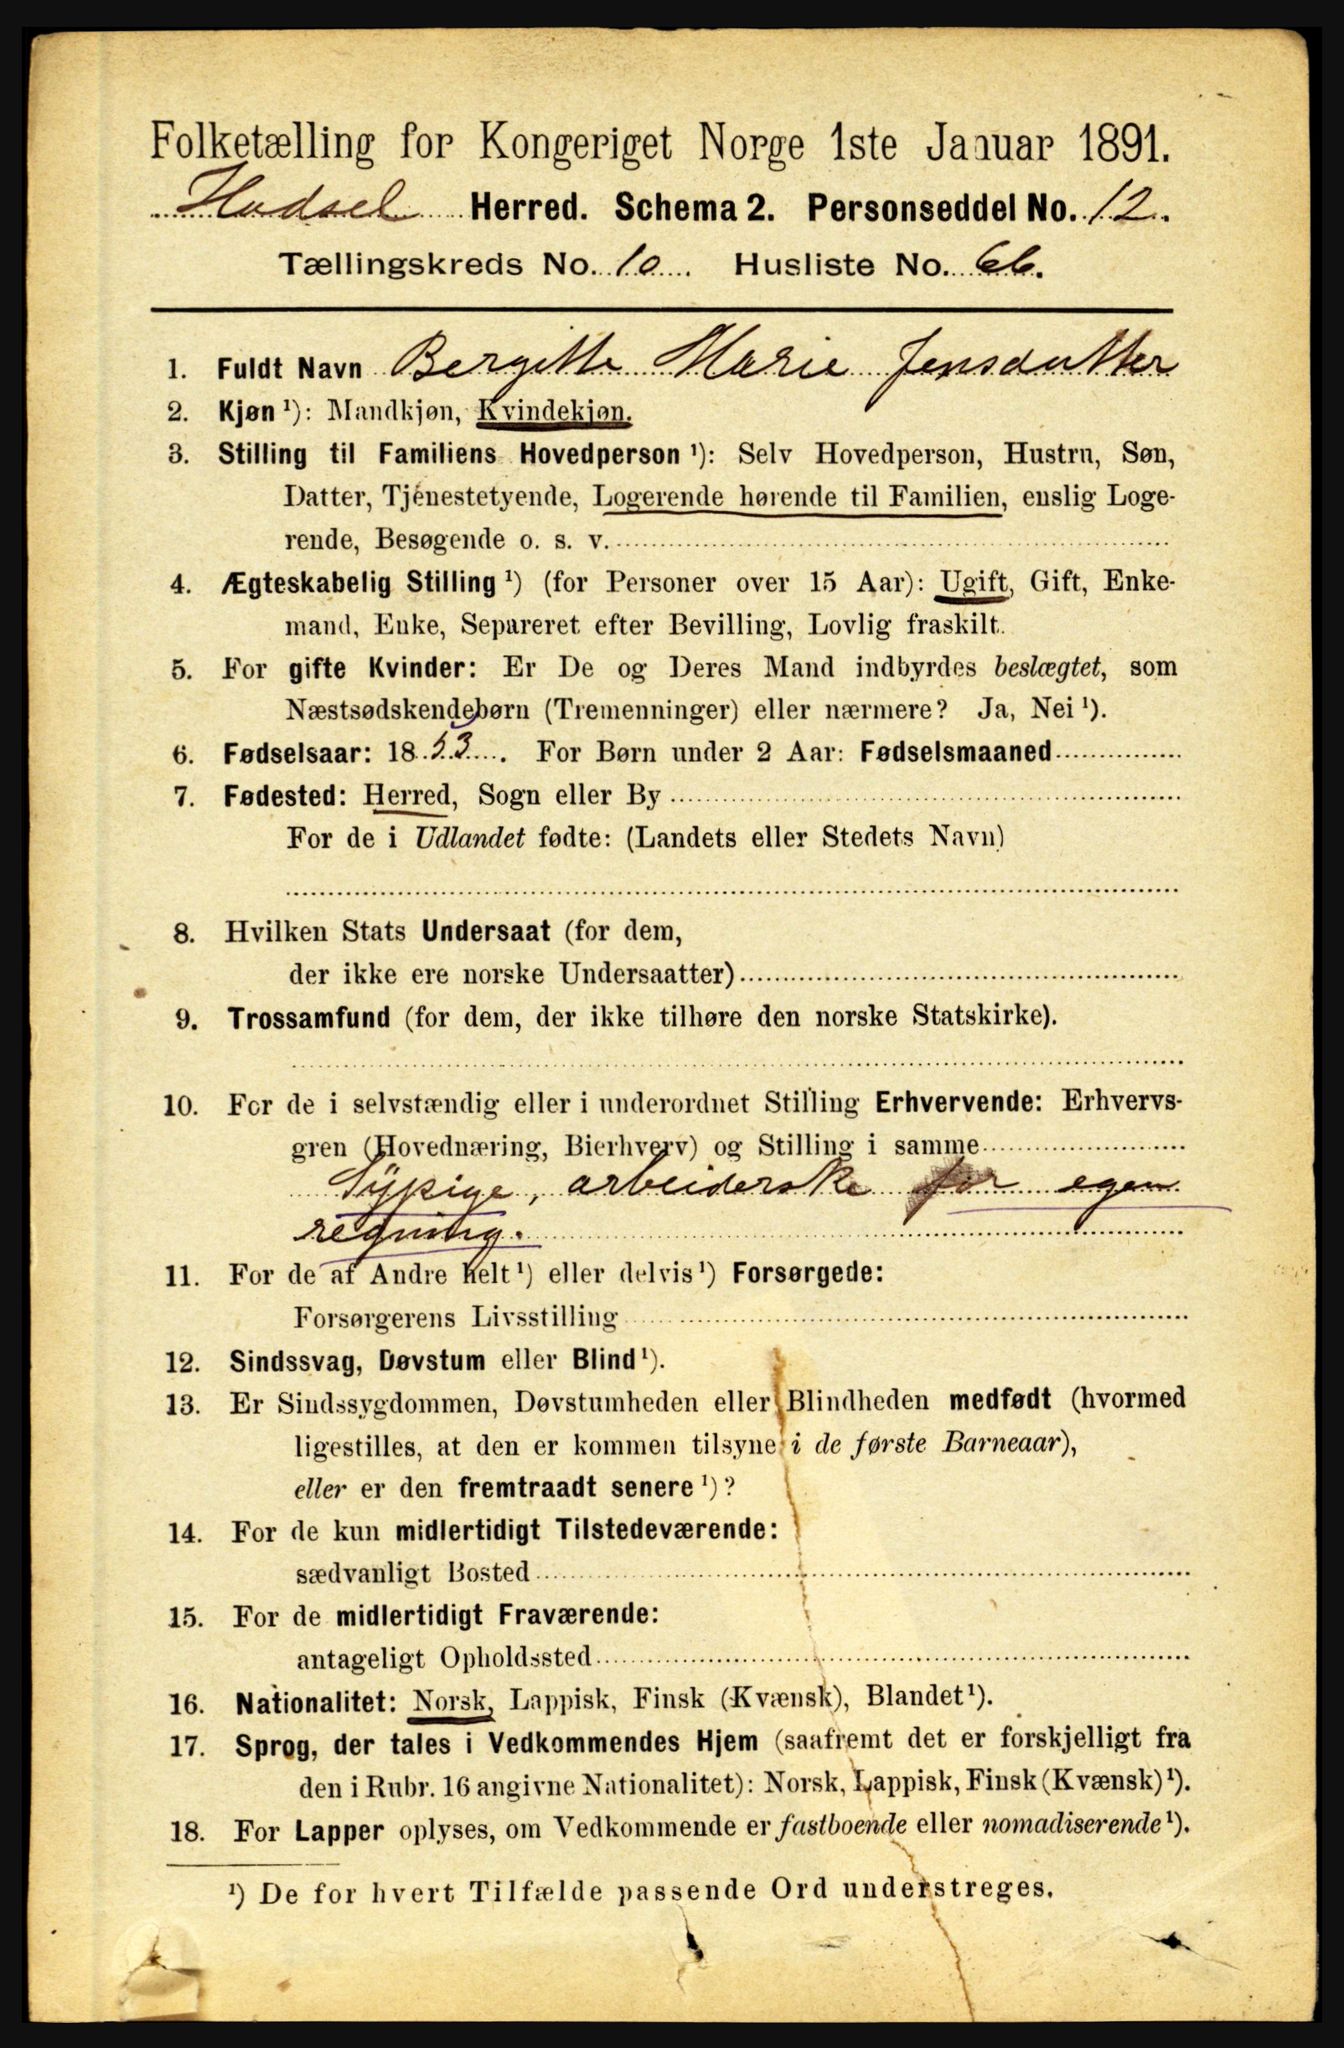 Folketælling for Kongeriget Norge 1ste Januar 1891.
Hadsel Herred. Schema 2. Personseddel No. 12.
Tællingskreds No. 10. Husliste No. 66.
1. Fuldt Navn Bergitte Marie Jensdatter
2. Kjøn ¹): Mandkjøn, Kvindekjøn.
3. Stilling til Familiens Hovedperson ¹): Selv Hovedperson, Hustru, Søn,
Datter, Tjenestetyende, Logerende hørende til Familien, enslig Loge-
rende, Besøgende o. s. v.
4. Ægteskabelig Stilling ¹) (for Personer over 15 Aar): Ugift, Gift, Enke-
mand, Enke, Separeret efter Bevilling, Lovlig fraskilt.
5. For gifte Kvinder: Er De og Deres Mand indbyrdes beslægtet, som
Næstsødskendebørn (Tremenninger) eller nærmere? Ja, Nei ¹).
6. Fødselsaar: 1853. For Børn under 2 Aar: Fødselsmaaned
7. Fødested: Herred, Sogn eller By
For de i Udlandet fødte: (Landets eller Stedets Navn)
8. Hvilken Stats Undersaat (for dem,
der ikke ere norske Undersaatter)
9. Trossamfund (for dem, der ikke tilhøre den norske Statskirke).
10. For de i selvstændig eller i underordnet Stilling Erhvervende: Erhvervs-
gren (Hovednæring, Bierhverv) og Stilling i samme
Sypige, arbeiderske for egen
regning.
11. For de af Andre helt ¹) eller delvis ¹) Forsørgede:
Forsørgerens Livsstilling
12. Sindssvag, Døvstum eller Blind ¹).
13. Er Sindssygdommen, Døvstumheden eller Blindheden medfødt (hvormed
ligestilles, at den er kommen tilsyne i de første Barneaar),
eller er den fremtraadt senere ¹)?
14. For de kun midlertidigt Tilstedeværende:
sædvanligt Bosted
15. For de midlertidigt Fraværende:
antageligt Opholdssted
16. Nationalitet: Norsk, Lappisk, Finsk (Kvænsk), Blandet ¹).
17. Sprog, der tales i Vedkommendes Hjem (saafremt det er forskjelligt fra
den i Rubr. 16 angivne Nationalitet): Norsk, Lappisk, Finsk (Kvænsk) ¹).
18. For Lapper oplyses, om Vedkommende er fastboende eller nomadiserende ¹).
¹) De for hvert Tilfælde passende Ord understreges.